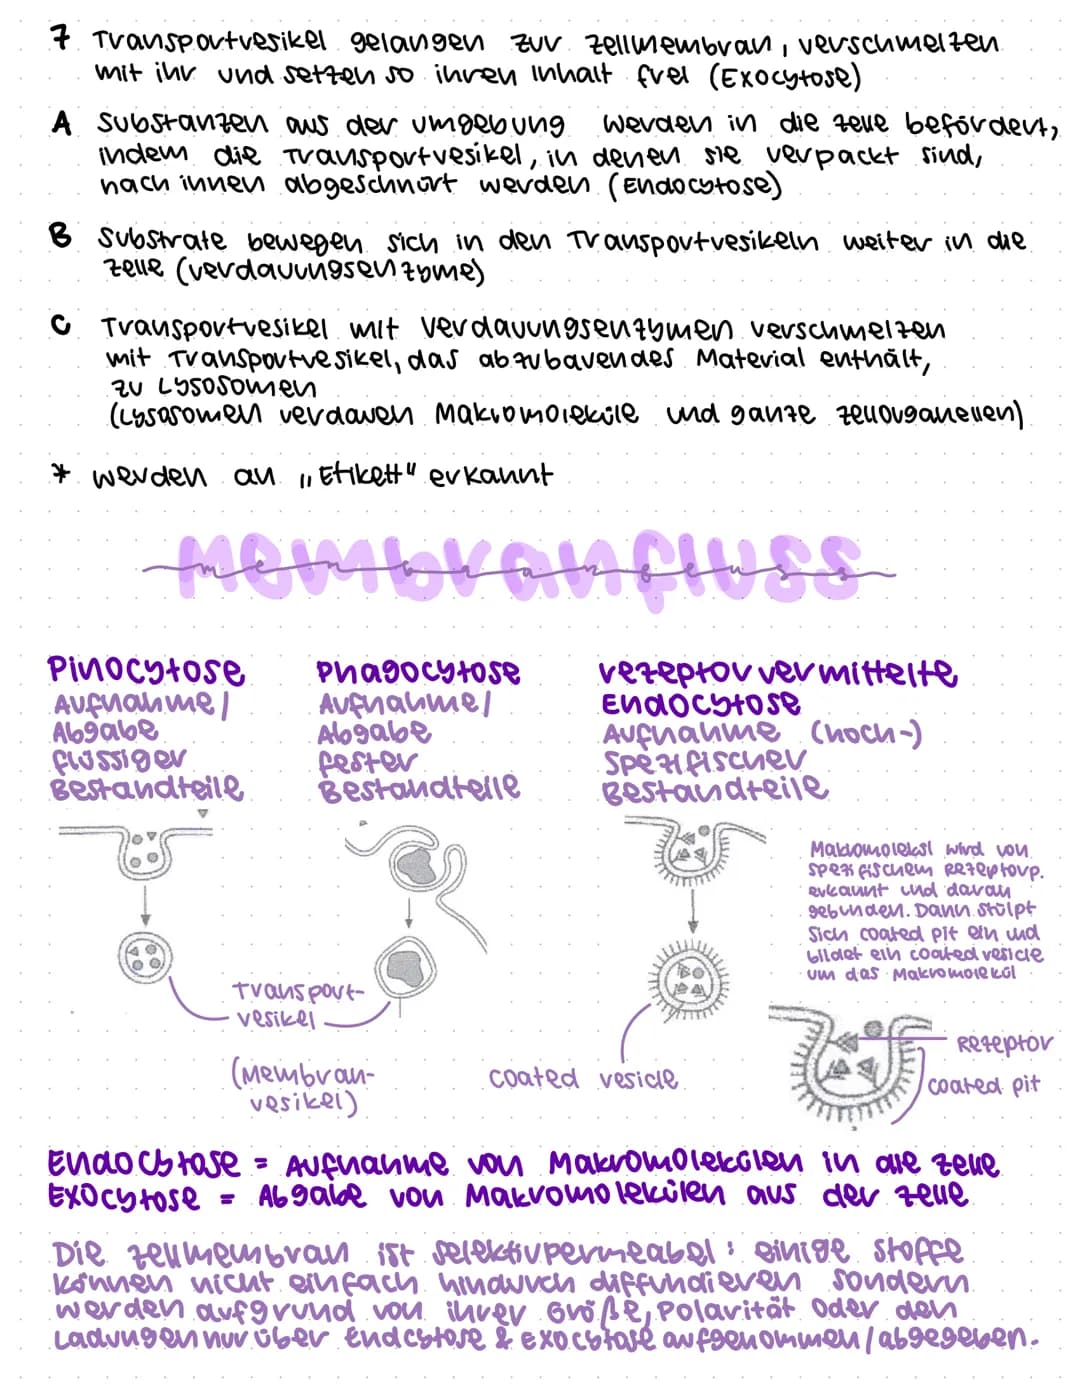 7 Transportvesikel gelangen zur Zellmembran, verschmelzen
mit ihr und setzen so ihren Inhalt frei (Exocytose)
A Substanzen aus der Umgebung werden in die Zelle befördert,
indem die Transportvesikel, in denen sie verpackt sind,
nach innen abgeschnürt werden (Endocytose)
B Substrate bewegen sich in den Transportvesikeln weiter in die
Zelle (Verdauungsenzyme)
C Transportvesikel mit Verdauungsenzymen verschmelzen
mit Transportvesikel, das abzubauendes Material enthält,
zu Lysosomen
(Lysosomen verdauen Makromoleküle und ganze Zellorganellen)
* werden an „Etikett" erkannt
Membranfluss
membranfluss
Pinocytose
Aufnahme/
Abgabe
flüssiger
Bestandteile
Phagocytose
Aufnahme/
Abgabe
fester
Bestandteile
rezeptorvermittelte
Endocytose
Aufnahme (hoch-)
spezifischer
Bestandteile
Makromolekül wird von
spezifischem Rezeptorp.
erkannt und daran
gebunden. Dann stülpt
sich coated pit ein und
bildet ein coated vesicle
um das Makromolekül
Transport-
vesikel
(Membran-
vesikel)
coated vesicle
Rezeptor
coated pit
Endocytose = Aufnahme von Makromolekülen in die Zelle
Exocytose = Abgabe von Makromolekülen aus der Zelle
Die Zellmembran ist selektivpermeabel: einige Stoffe
können nicht einfach hindurch diffundieren sondern
werden aufgrund von ihrer Größe, Polarität oder den
Ladungen nur über Endcytose & Exocytose aufgenommen/abgegeben.